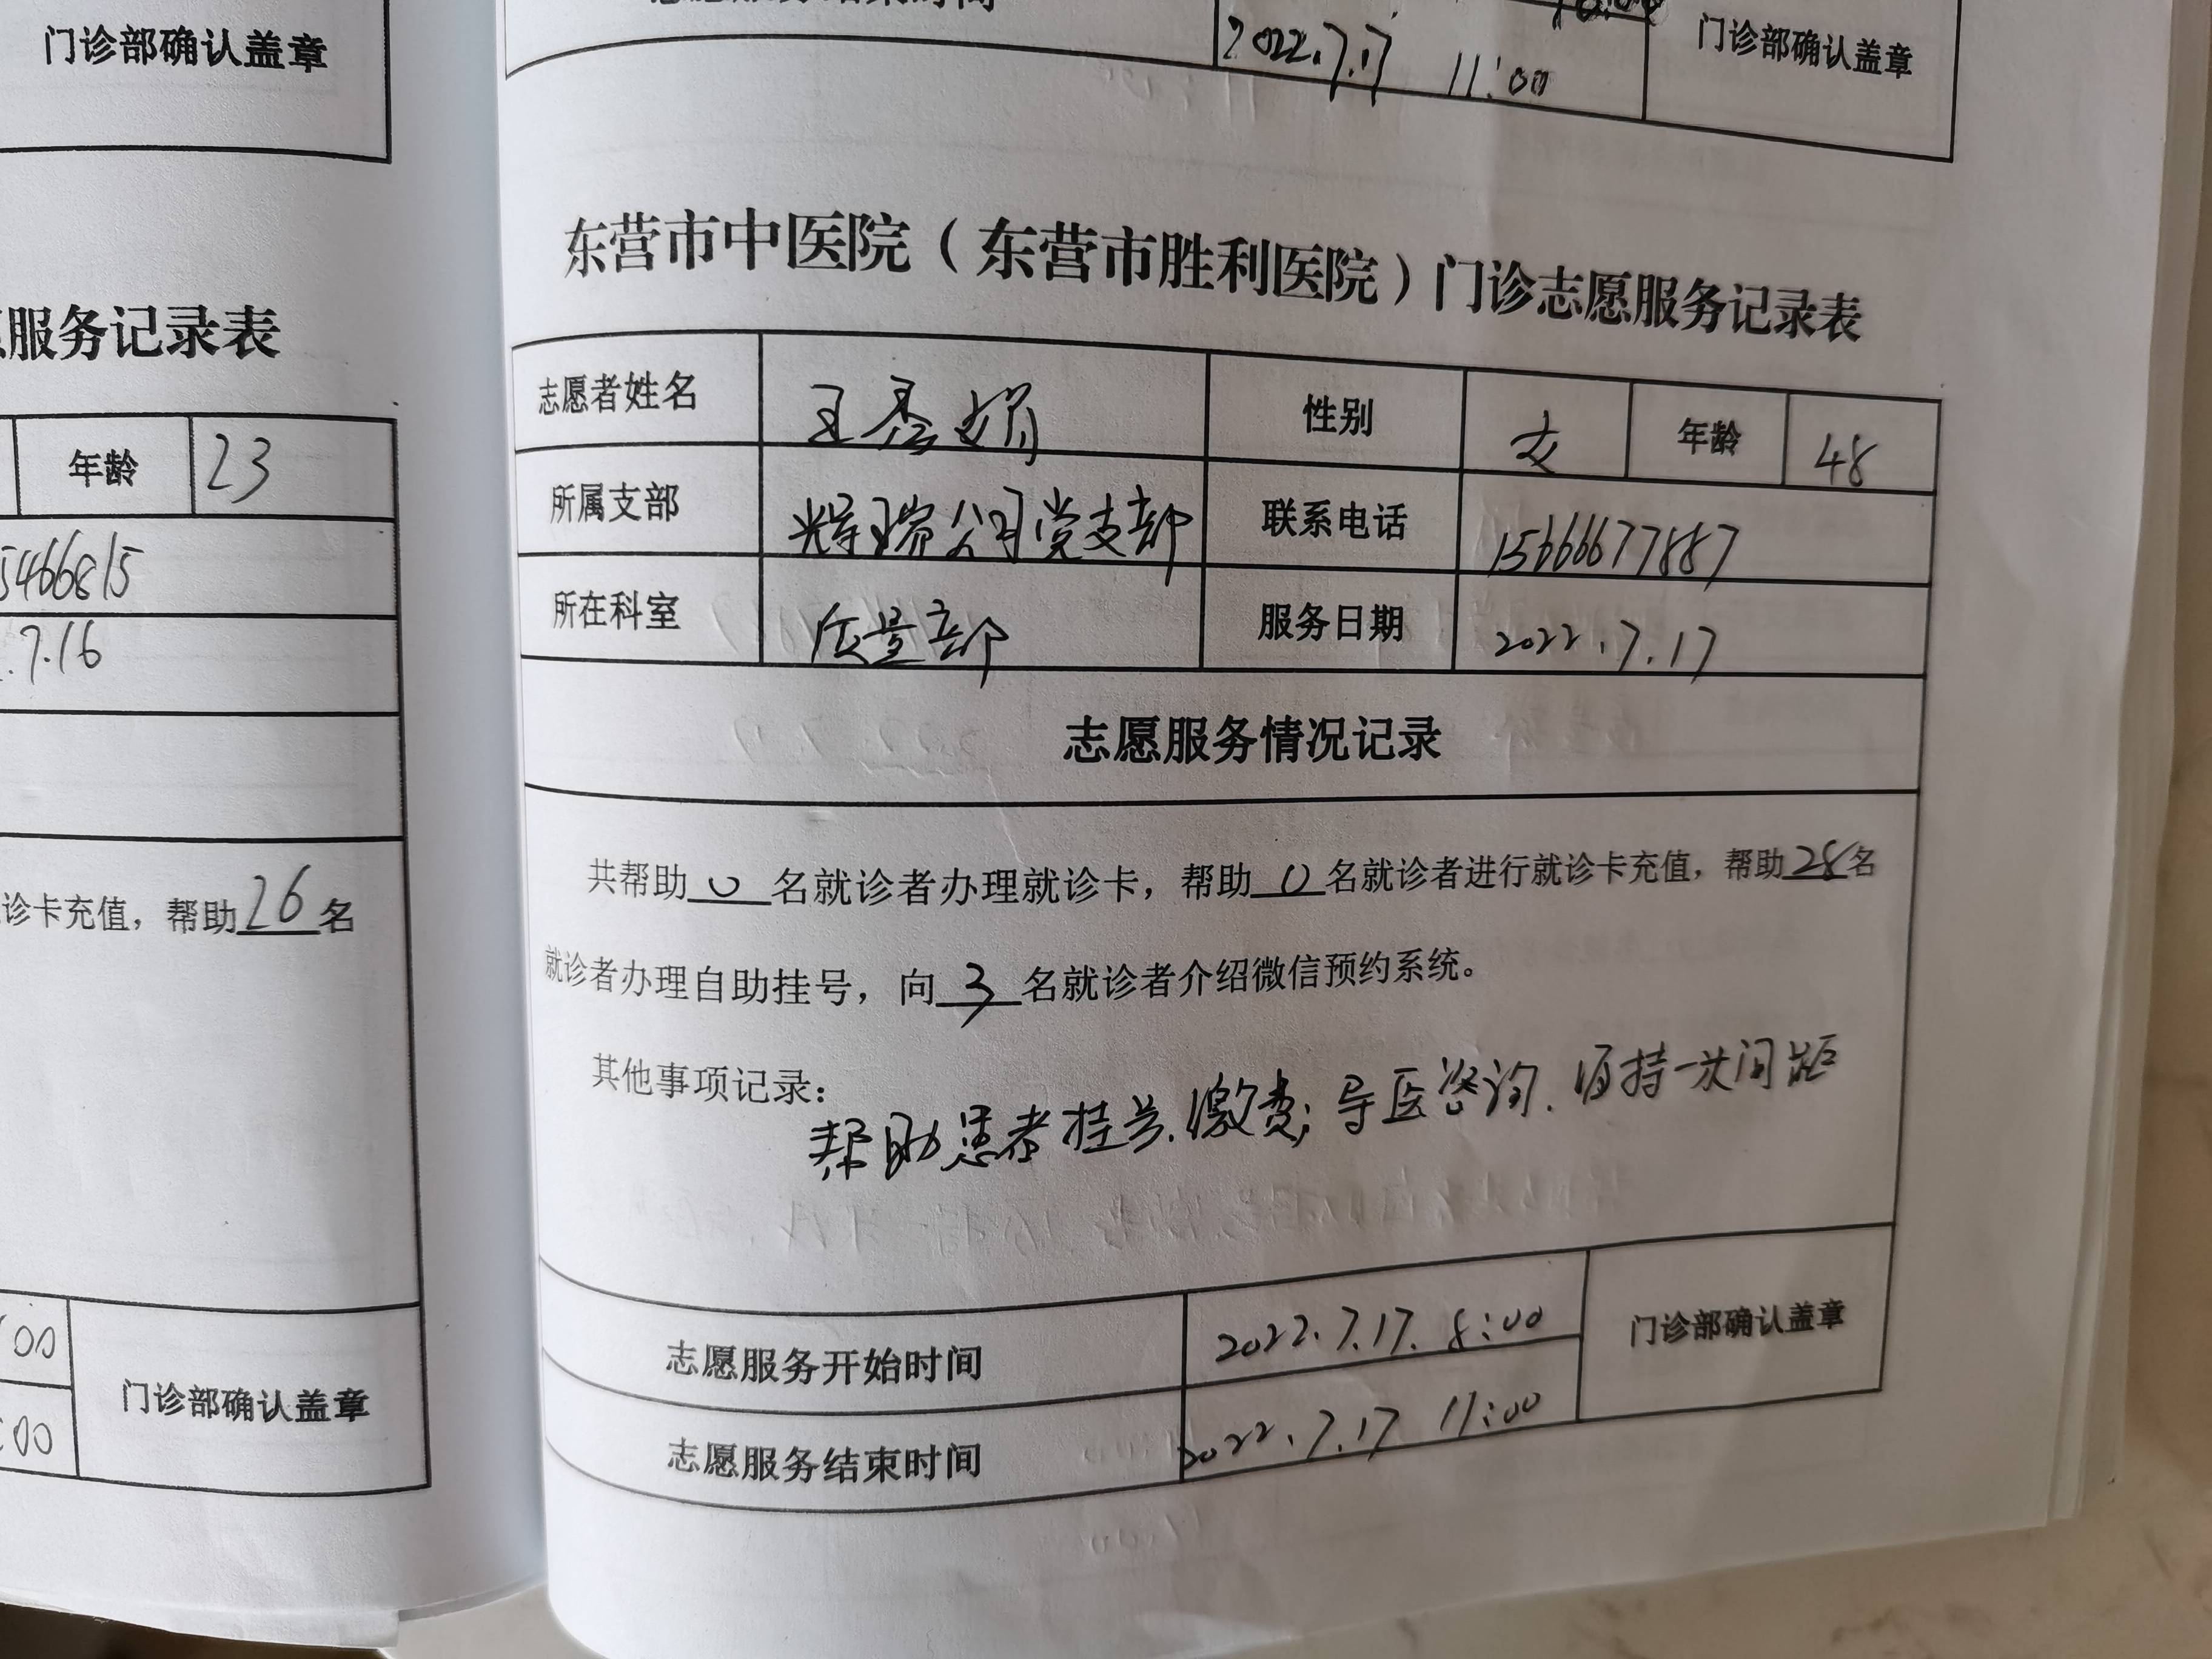 门诊部确认盖章
服务记录表
年龄 23
5466815
.7.16
诊卡充值，帮助26名
:00
门诊部确认盖章
:00
2022.7.17 11:00
门诊部确认盖章
东营市中医院（东营市胜利医院）门诊志愿服务记录表
志愿者姓名 王 娟 性别 女 年龄 48
所属支部 辉瑞公司党支部 联系电话 15666677887
所在科室 质量部 服务日期 2022.7.17
志愿服务情况记录
共帮助 0 名就诊者办理就诊卡，帮助 0 名就诊者进行就诊卡充值，帮助28名
就诊者办理自助挂号，向 3 名就诊者介绍微信预约系统。
其他事项记录：
帮助患者挂号.缴费;导医咨询.保持一米间距
志愿服务开始时间 2022.7.17. 8:00
门诊部确认盖章
志愿服务结束时间 2022.7.17 11:00